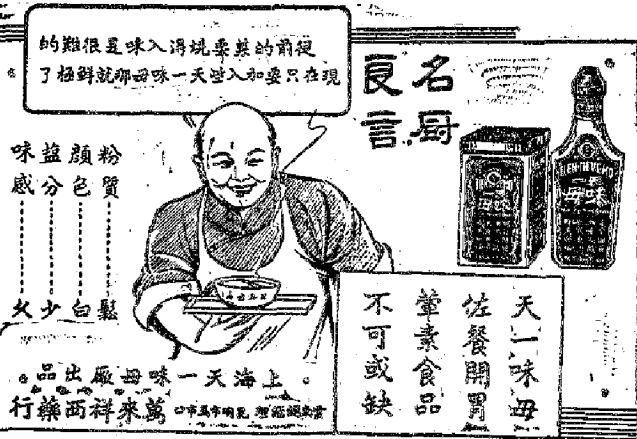 從前的菜要燒得入味是很難的
現在只要加入些天一味母那就鮮極了
名厨
良言
粉質……鬆
顏色……白
鹽分……少
味感……
味母
天一味母
佐餐開胃
葷素食品
不可或缺
上海天一味母廠出品
萬來祥西藥行